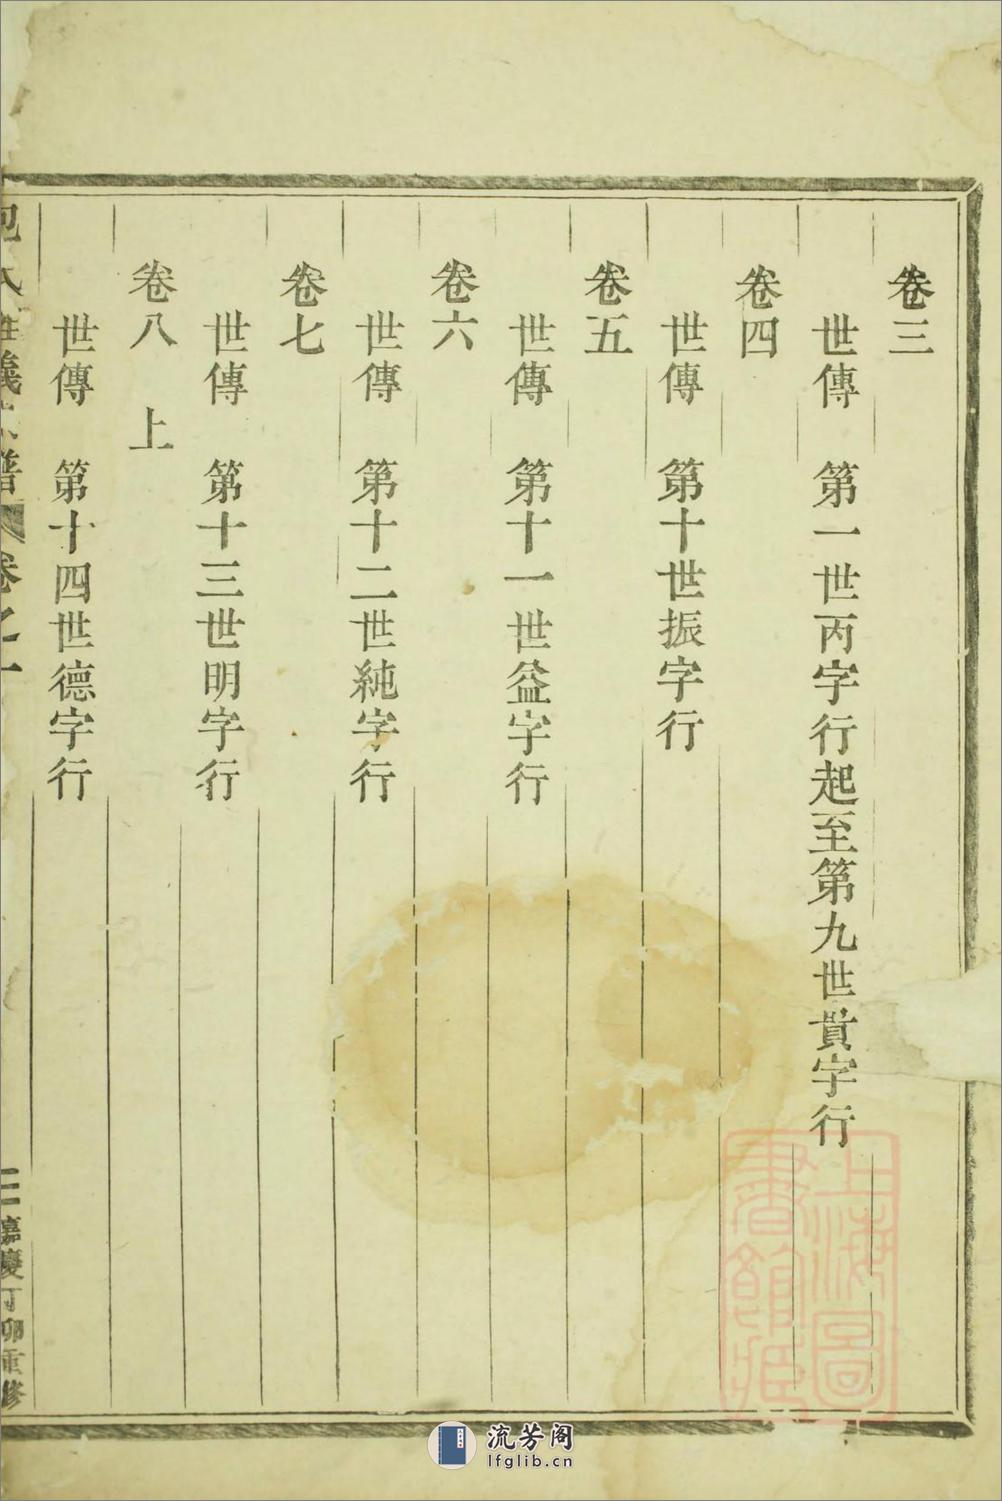 卷三
世傳　第一世丙字行起至第九世貴字行
卷四
世傳　第十世振字行
卷五
世傳　第十一世益字行
卷六
世傳　第十二世純字行
卷七
世傳　第十三世明字行
卷八　上
世傳　第十四世德字行
譜　卷之一
二　嘉慶丁卯重修
上海圖書館藏
流芳阁
lfglib.cn